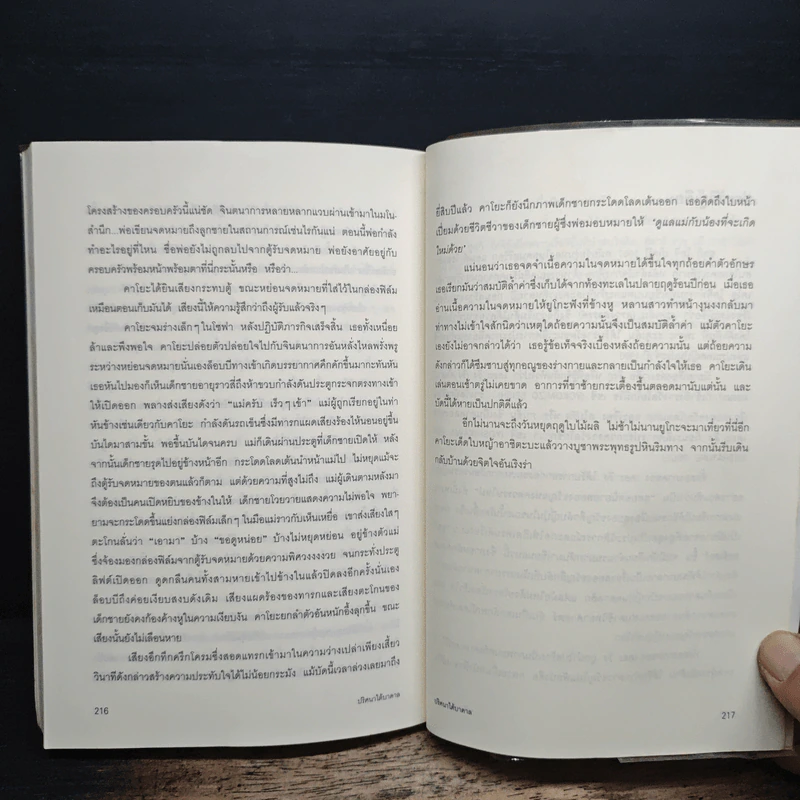 โครงสร้างของครอบครัวนี้แน่ชัด จินตนาการหลายหลากแวบผ่านเข้ามาในมโน-
สำนึก...พ่อเขียนจดหมายถึงลูกชายในสถานการณ์เช่นไรกันแน่ ตอนนี้พ่อกำลัง
ทำอะไรอยู่ที่ไหน ชื่อพ่อยังไม่ถูกลบไปจากตู้รับจดหมาย พ่อยังอาศัยอยู่กับ
ครอบครัวพร้อมหน้าพร้อมตาที่นี่กระนั้นหรือ หรือว่า...
คาโยะได้ยินเสียงกระทบตู้ ขณะหย่อนจดหมายที่ใส่ไว้ในกล่องฟิล์ม
เหมือนตอนเก็บมันได้ เสียงนี้ให้ความรู้สึกว่าถึงผู้รับแล้วจริงๆ
คาโยะจมร่างเล็กๆ ในโซฟา หลังปฏิบัติภารกิจเสร็จสิ้น เธอทั้งเหนื่อย
ล้าและพึงพอใจ คาโยะปล่อยตัวปล่อยใจไปกับจินตนาการอันหลั่งไหลพรั่งพรู
ระหว่างหย่อนจดหมายนั่นเองล็อบบีทางเข้าเกิดบรรยากาศคึกคักขึ้นมากะทันหัน
เธอหันไปมองก็เห็นเด็กชายอายุราวสี่ถึงห้าขวบกำลังดันประตูกระจกตรงทางเข้า
ให้เปิดออก พลางส่งเสียงดังว่า "แม่ครับ เร็วๆ เข้า" แม่ผู้ถูกเรียกอยู่ในท่า
หันข้างเช่นเดียวกับคาโยะ กำลังดันรถเข็นซึ่งมีทารกแผดเสียงร้องไห้นอนอยู่ขึ้น
บันไดมาสามขั้น พอขึ้นบันไดจนครบ แม่ก็เดินผ่านประตูที่เด็กชายเปิดให้ หลัง
จากนั้นเด็กชายรุดไปอยู่ข้างหน้าอีก กระโดดโลดเต้นนำหน้าแม่ไป ไม่หยุดแม้จะ
ถึงตู้รับจดหมายของตนแล้วก็ตาม แต่ด้วยความที่สูงไม่ถึง แม่ผู้เดินตามหลังมา
จึงต้องเป็นคนเปิดหยิบของข้างในให้ เด็กชายโวยวายแสดงความไม่พอใจ พยา-
ยามจะกระโดดขึ้นแย่งกล่องฟิล์มเล็กๆ ในมือแม่ราวกับเห็นเหยื่อ เขาส่งเสียงใสๆ
ตะโกนลั่นว่า "เอามา" บ้าง "ขอดูหน่อย" บ้างไม่หยุดหย่อน อยู่ข้างตัวแม่
ซึ่งจ้องมองกล่องฟิล์มจากตู้รับจดหมายด้วยความพิศวงงงงวย จนกระทั่งประตู
ลิฟต์เปิดออก ดูดกลืนคนทั้งสามหายเข้าไปข้างในแล้วปิดลงอีกครั้งนั่นเอง
ล็อบบีถึงค่อยเงียบสงบดังเดิม เสียงแผดร้องของทารกและเสียงตะโกนของ
เด็กชายยังคงก้องค้างหูในความเงียบงัน คาโยะยกลำตัวอันหนักอึ้งลุกขึ้น ขณะ
เสียงนั้นยังไม่เลือนหาย
เสียงอึกทึกครึกโครมซึ่งสอดแทรกเข้ามาในความว่างเปล่าเพียงเสี้ยว
วินาทีดังกล่าวสร้างความประทับใจได้ไม่น้อยกระมัง แม้บัดนี้เวลาล่วงเลยมาถึง
216
ปริศนาใต้บาดาล
ยี่สิบปีแล้ว คาโยะก็ยังนึกภาพเด็กชายกระโดดโลดเต้นออก เธอคิดถึงใบหน้า
เปี่ยมด้วยชีวิตชีวาของเด็กชายผู้ซึ่งพ่อมอบหมายให้ 'ดูแลแม่กับน้องที่จะเกิด
ใหม่ด้วย'
แน่นอนว่าเธอจดจำเนื้อความในจดหมายได้ขึ้นใจทุกถ้อยคำตัวอักษร
เธอเรียกมันว่าสมบัติล้ำค่าซึ่งเก็บได้จากท้องทะเลในปลายฤดูร้อนปีก่อน เมื่อเธอ
อ่านเนื้อความในจดหมายให้ยูโกะฟังที่ข้างหู หลานสาวทำหน้างุนงงกลับมา
ทำท่าทางไม่เข้าใจสักนิดว่าเหตุใดถ้อยความนั้นจึงเป็นสมบัติล้ำค่า แม้ตัวคาโยะ
เองยังไม่อาจกล่าวได้ว่า เธอรู้ข้อเท็จจริงเบื้องหลังถ้อยความนั้น แต่ถ้อยความ
ดังกล่าวก็ได้ซึมซาบสู่ทุกอณูของร่างกายและกลายเป็นกำลังใจให้เธอ คาโยะเดิน
เล่นตอนเช้าตรู่ไม่เคยขาด อาการที่ขาซ้ายกระเตื้องขึ้นตลอดมานับแต่นั้น และ
บัดนี้ได้หายเป็นปกติดีแล้ว
อีกไม่นานจะถึงวันหยุดฤดูใบไม้ผลิ ไม่ช้าไม่นานยูโกะจะมาเที่ยวที่นี่อีก
คาโยะเด็ดใบหญ้าอาชิตะบะแล้ววางบูชาพระพุทธรูปหินริมทาง จากนั้นรีบเดิน
กลับบ้านด้วยจิตใจอันเริงร่า
ปริศนาใต้บาดาล
217